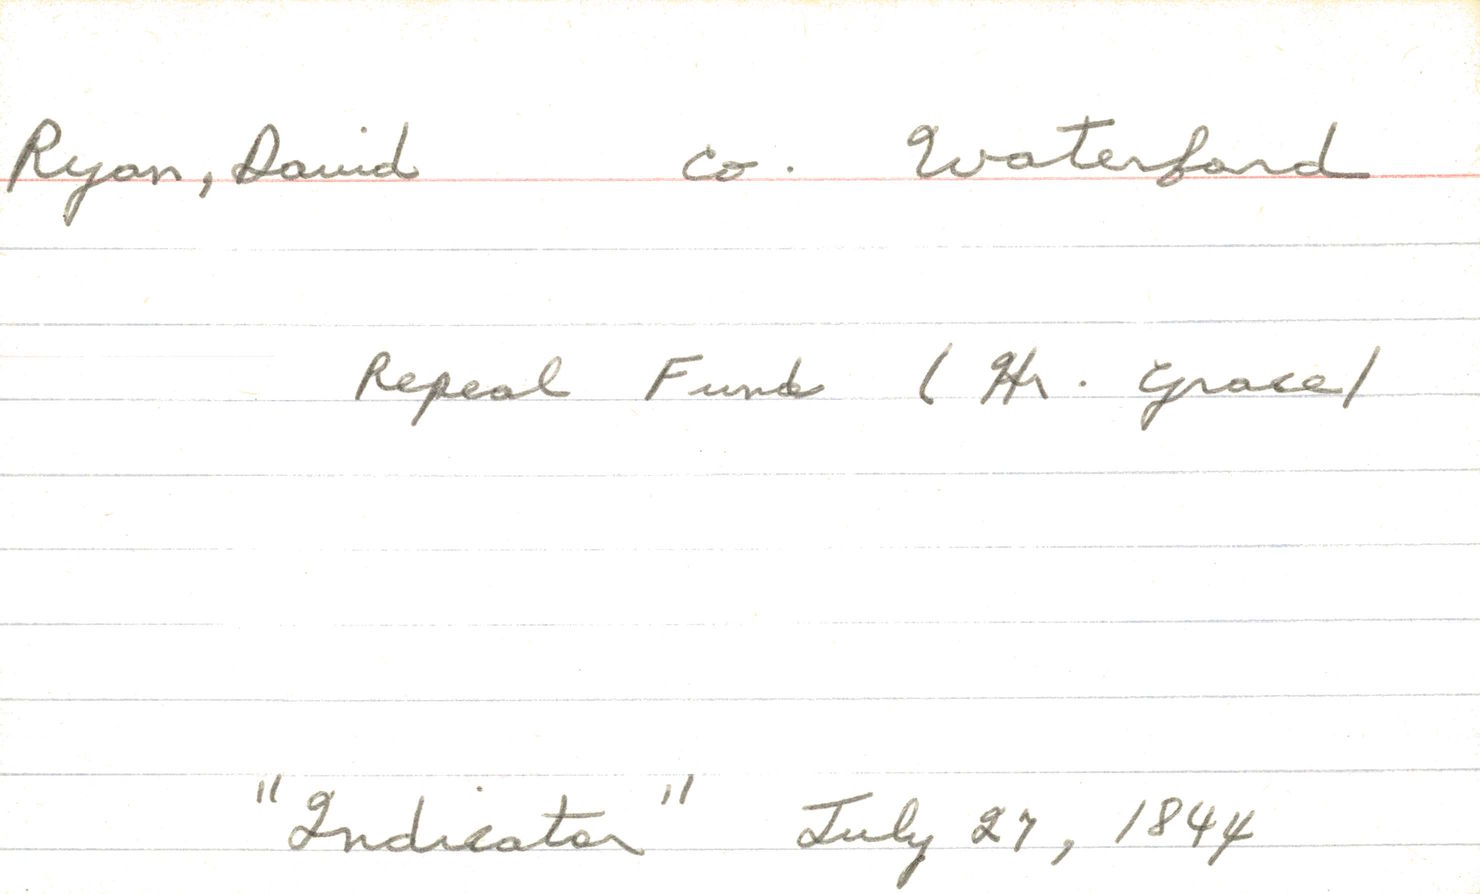 Ryan, David Co. Waterford
Repeal Fund (Hr. Grace)
"Indicator" July 27, 1844